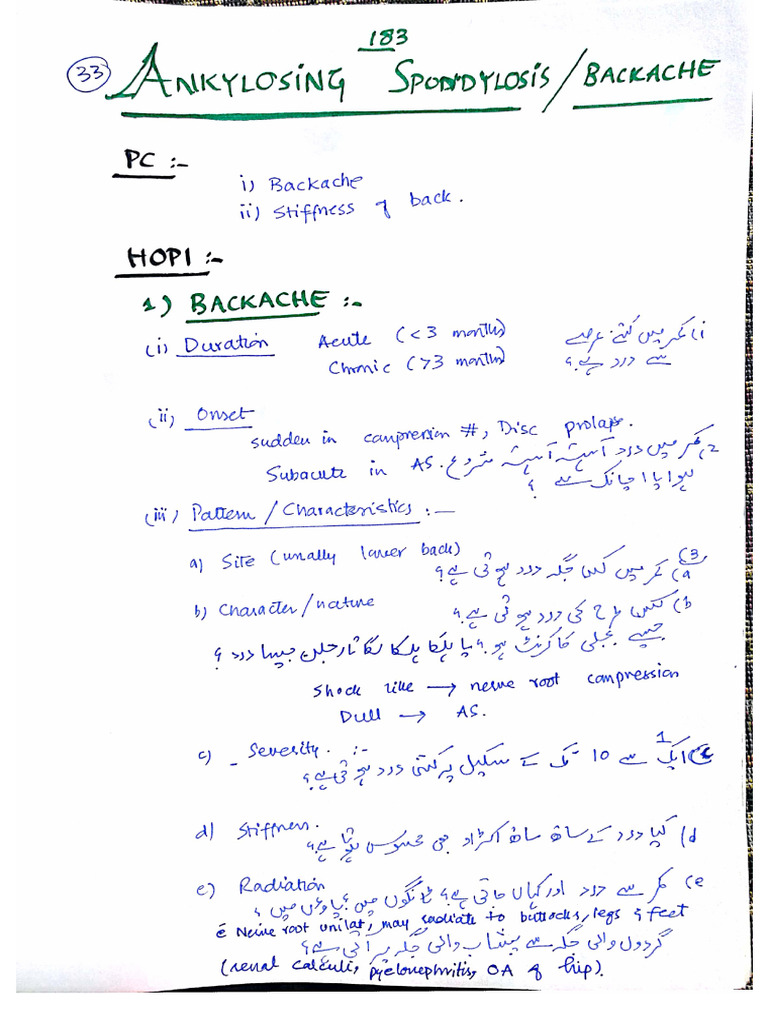 183
33 ANKYLOSING SPONDYLOSIS / BACKACHE
PC :-
i) Backache
ii) Stiffness of back.
HOPI :-
1) BACKACHE :-
(i) Duration Acute (<3 months) (i کمر میں کتنے عرصے
Chronic (>3 months) سے درد ہے؟
(ii) Onset
sudden in compression #, Disc prolapse.
2, کمر میں درد آہستہ آہستہ شروع
Subacute in AS.
ہوا یا اچانک سے ؟
(iii) Pattern / Characteristics :-
a) Site (usually lower back) (3 (a کمر میں کس جگہ درد ہوتی ہے؟
b) Character/nature (b کس طرح کی درد ہوتی ہے؟
جیسے بجلی کا کرنٹ ہو؟ یا ہلکا ہلکا لگاتار جلن جیسا درد ؟
Shock like → nerve root compression
Dull → AS.
c) - Severity. :- (c ایک 1 سے 10 تک کے سکیل پر کتنی درد ہوتی ہے؟
d) Stiffness. (d کیا درد کے ساتھ ساتھ اکڑاو بھی محسوس ہوتا ہے؟
e) Radiation (e کمر سے درد اور کہاں جاتی ہے؟ ٹانگوں میں؟ پاوں میں ؟
c̄ Nerve root unilat, may radiate to buttocks, legs & feet
گردوں والی جگہ سے پیشاب والی جگہ پر آتی ہے؟
(renal calculi, pyelonephritis, OA of hip).